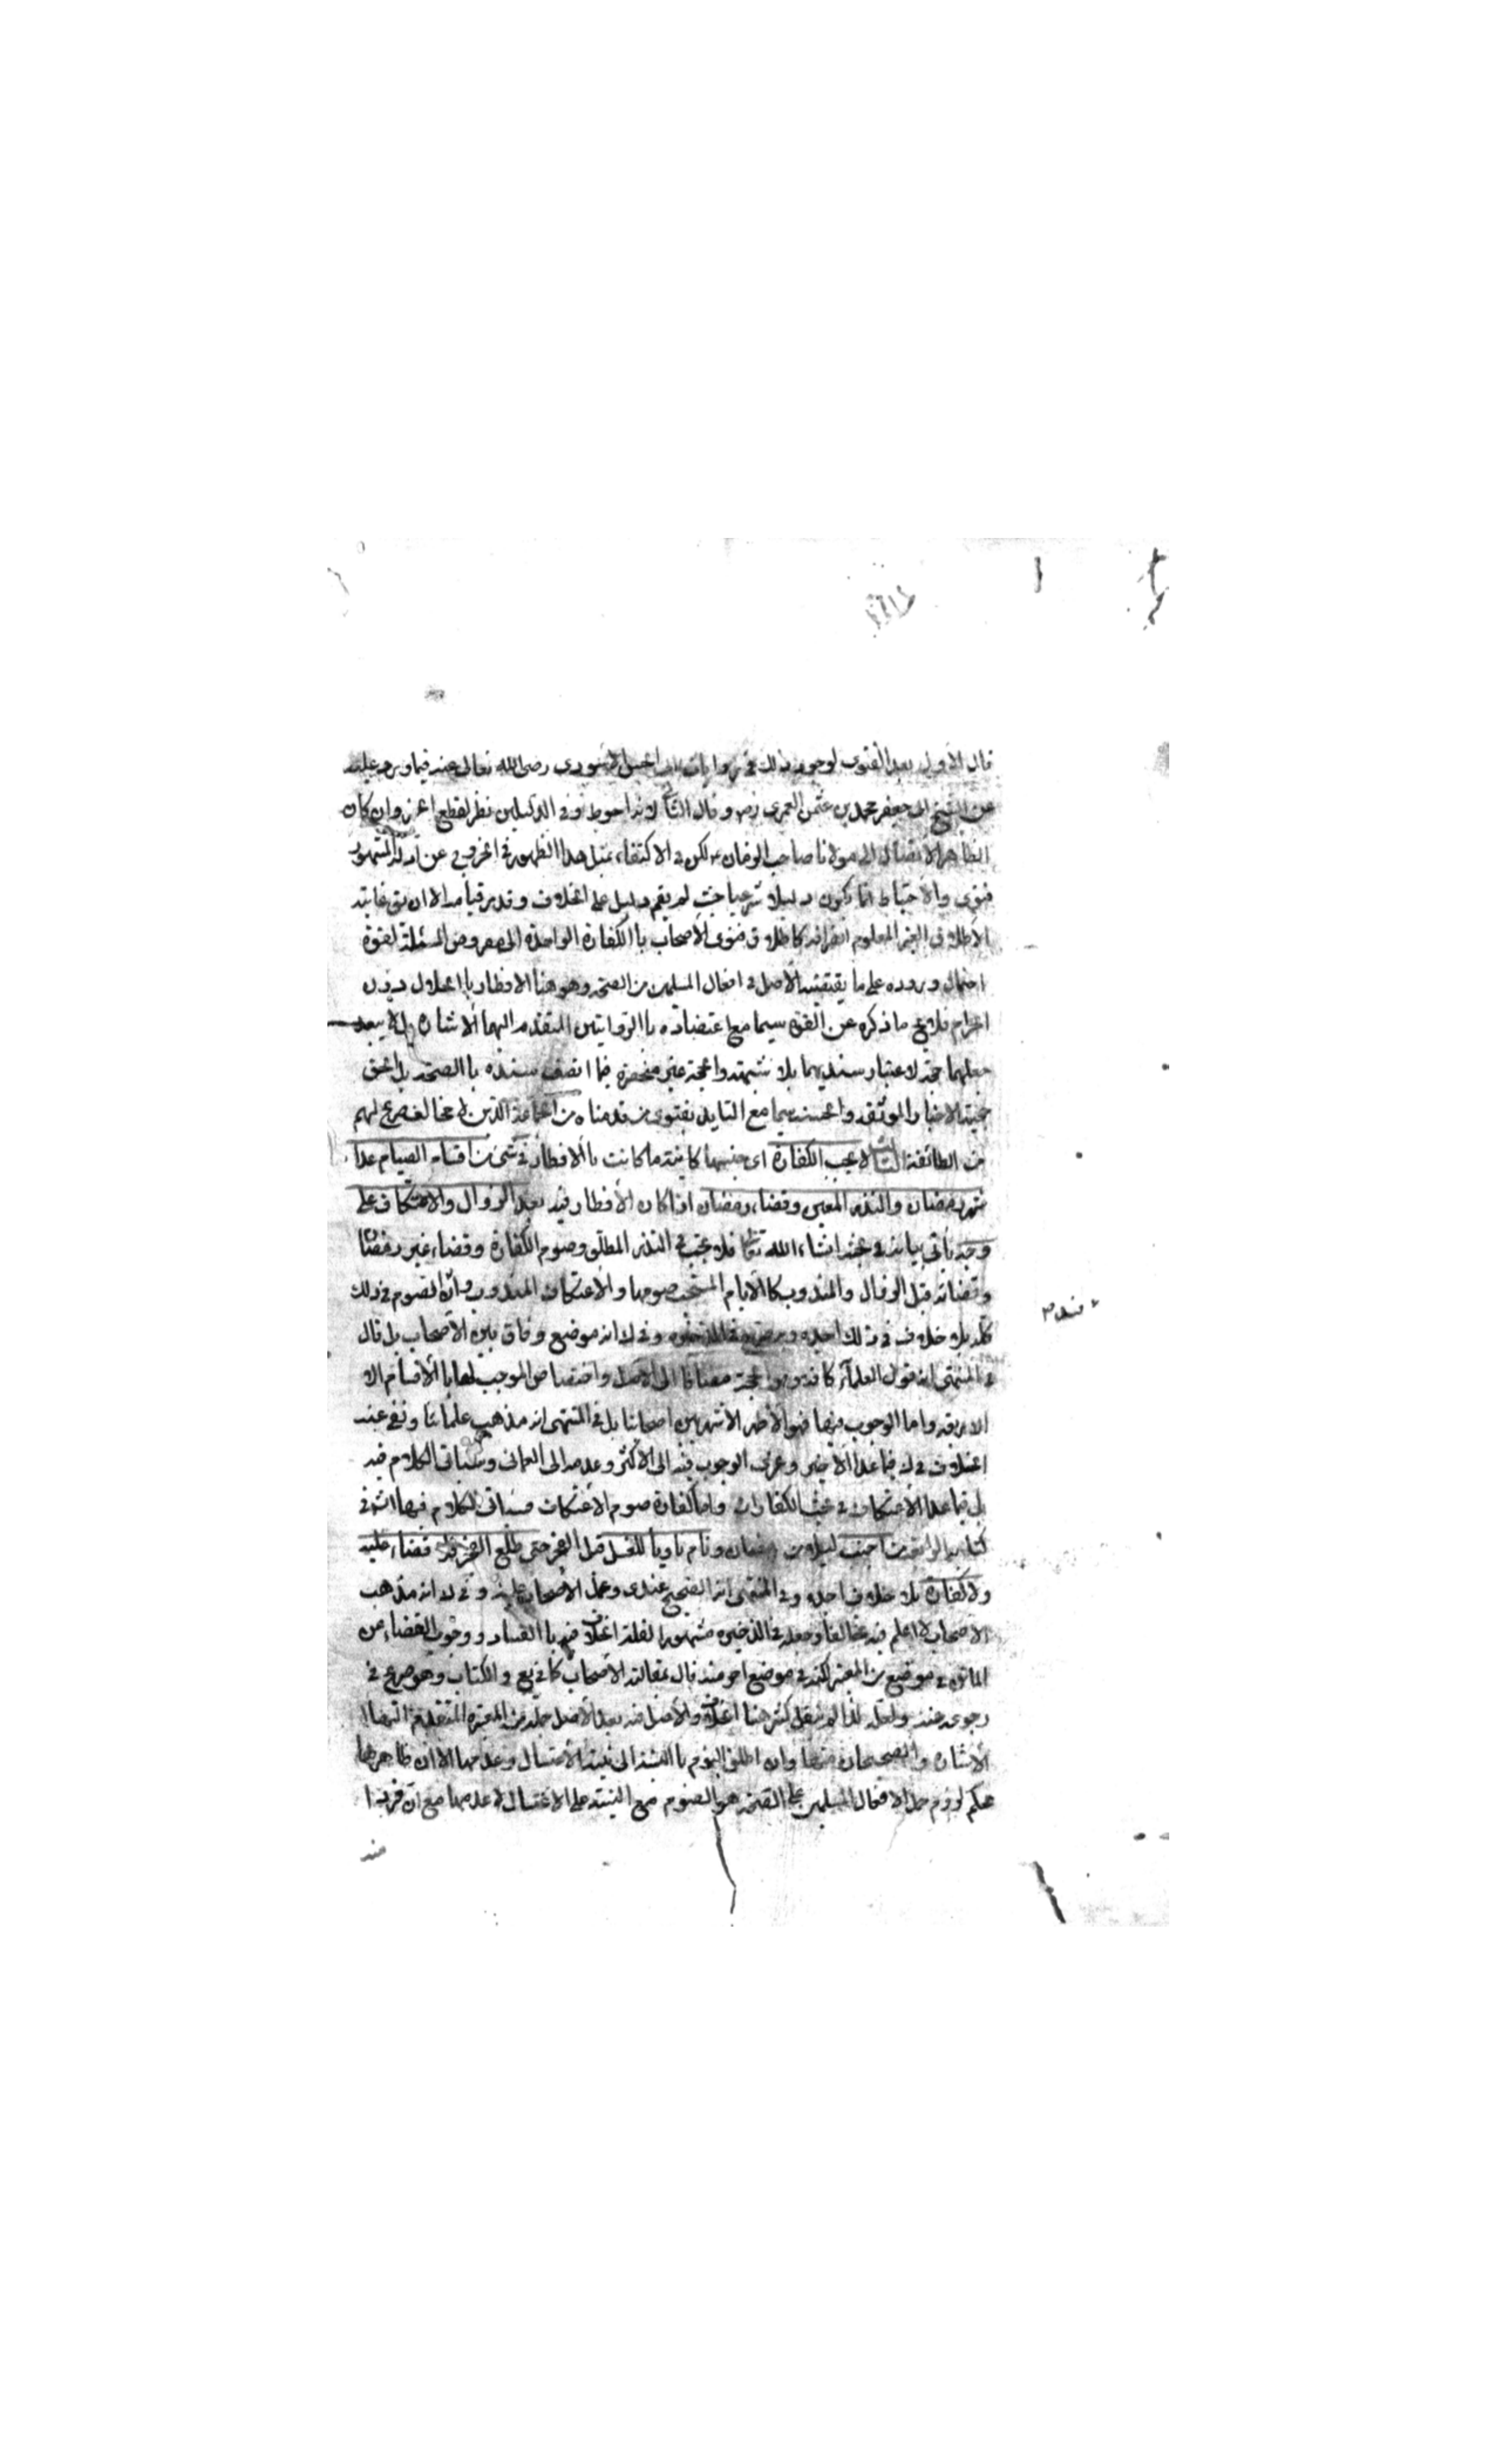 قال الاول بعد الفتوى لوجود ذلك في روايات ابي الحسين الاسدي رضي الله تعالى عنه فيما ورد عليه
عن الشيخ ابي جعفر محمد بن عثمن العمري رض وقال الثاني لانه احوط وفي الدليلين نظر لقطع الخبر وان كان
الظاهر الاتصال الى مولانا صاحب الزمان لكن في الاكتفاء بمثل هذا الظهور في الخروج عن ادلة المشهور
فتوى والاحتياط انما يكون دليلا شرعيا حيث لم يقم دليل على الخلاف وقد مر قيامه الا ان يق غايته
الاطلاق الغير المعلوم انصرافه كاطلاق فتوى الاصحاب باالكفارة الواحدة الى مفروض المسئلة لقوة
احتمال وروده على ما يقتضيه الاصل في افعال المسلمين من الصحة وهو هنا الافطار باالحلال دون
الحرام فلا يخ ما ذكره عن القوة سيما مع اعتضاده باالروايتين المتقدم اليهما الاشارة بل لا يبعد
جعلهما حجة لاعتبار سنديهما بلا شبهة والحجة غير منحصرة فيما اتصف سنده باالصحة بل الحق
حجية الاخبار الموثقة والحسنة سيما مع التايد بفتوى من قدمناه من الجماعة الذين لا مخالف صريح لهم
من الطائفة الثالث لا يجب الكفارة اي جنسها كائنة ما كانت باالافطار في شئ من اقسام الصيام عدا
شهر رمضان والنذر المعين وقضاء رمضان اذا كان الافطار فيه بعد الزوال والاعتكاف على
وجه ياتي بيانه في بحثه انشاء الله تعالى فلا تجب في النذر المطلق وصوم الكفارة وقضاء غير رمضان
وقضائه قبل الزوال والمندوب كاالايام المستحب صومها والاعتكاف المندوب وان الصوم في ذلك
كله بلا خلاف في ذلك اجده وبه صرح في الذخيره وفي ك انه موضع وفاق بين الاصحاب بل قال
في المنتهى انه قول العلماء كافة وهو الحجة مضافا الى الاصل واختصاص الموجب لها باالاقسام الا
الاربعة واما الوجوب فيها فهو الاظهر الاشهر بين اصحابنا بل في المنتهى انه مذهب علمائنا ونفي عنه
الخلاف في ك فيما عدا الاخير وعزى الوجوب فيه الى الاكثر وعدمه الى العماني وسياتي الكلام فيه
بل فيما عدا الاعتكاف في بحث الكفارات واما كفارة صوم الاعتكاف فسياتي الكلام فيها انش في
كتابه الرابع من اجنب ليلا من رمضان ونام ناويا للغسل قبل الفجر حتى طلع الفجر فلا قضاء عليه
ولا كفارة بلا خلاف اجده وفي المنتهى انه الصحيح عندي وعمل الاصحاب عليه وفي ك انه مذهب
الاصحاب لا اعلم فيه مخالفا وجعله في الذخيره مشهورا لفلتة الخلاف فيه باالفساد ووجوب القضاء من
الماتن في موضع من المعتبر لكنه في موضع اخر منه قال بمقالة الاصحاب كما في يع والكتاب وهو صريح في
رجوعه عنه ولعله لذا لم ينقل كثير هنا الخلاف والاصل فيه بعد الاصل جملة من المعتبره المتقدمة اليها
الاشارة والصحيحان منها وان اطلق النوم باالنسبة الى نية الاغتسال وعدمها الا ان ظاهرهما
بحكم لزوم حمل الافعال المسلمين على الصحة هو النوم مع النية على الاغتسال لا عدمها مع ان قربه ا